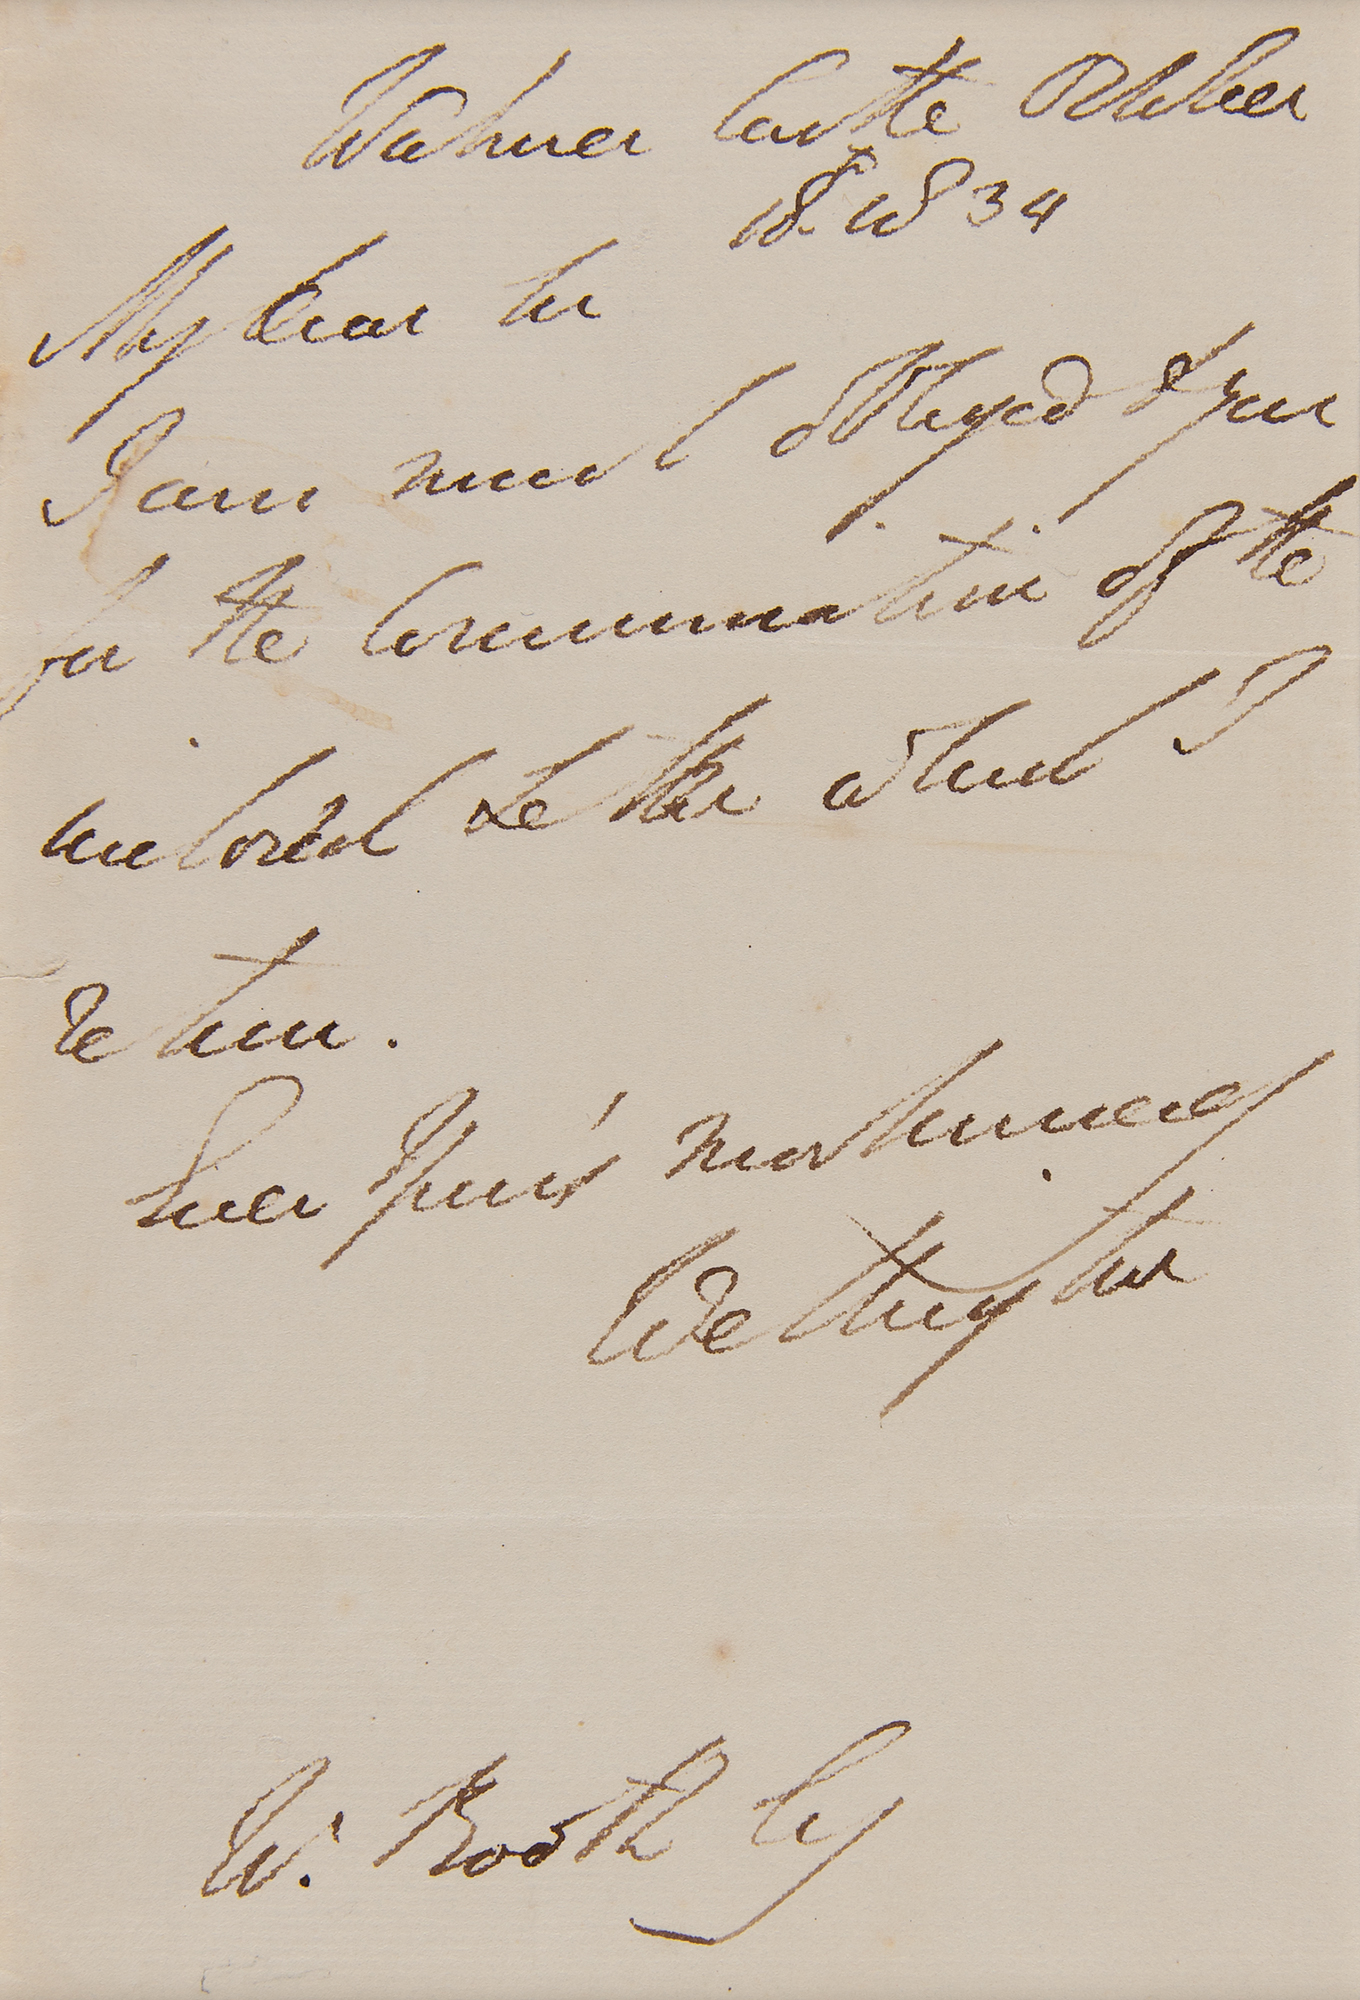 Walmer Castle October
18. 1834
My dear Sir
I am much obliged to you
for the communication of the
inclosed Letter which I
return.
Ever Your's most sincerely
Wellington
W. Booth Esq